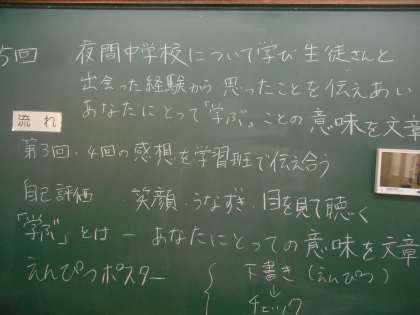 5回 夜間中学校について学び生徒さんと
出会った経験から思ったことを伝えあい
あなたにとって「学ぶ」ことの意味を文章
流れ
第3回・4回の感想を学習班で伝え合う
自己評価 ・笑顔・うなずき・目を見て聴く
「学ぶ」とは ー あなたにとっての意味を文章
えんぴつポスター
下書き(えんぴつ)
↓
チェック